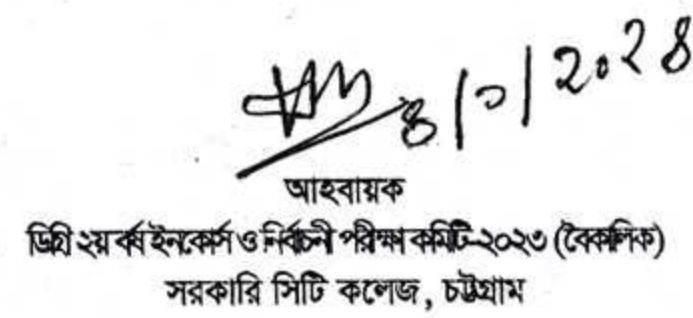 ৪/১/২০২৪
আহবায়ক
ডিগ্রি ২য় বর্ষ ইনকোর্স ও নির্বাচনী পরীক্ষা কমিটি-২০২৩ (বৈকালিক)
সরকারি সিটি কলেজ, চট্টগ্রাম